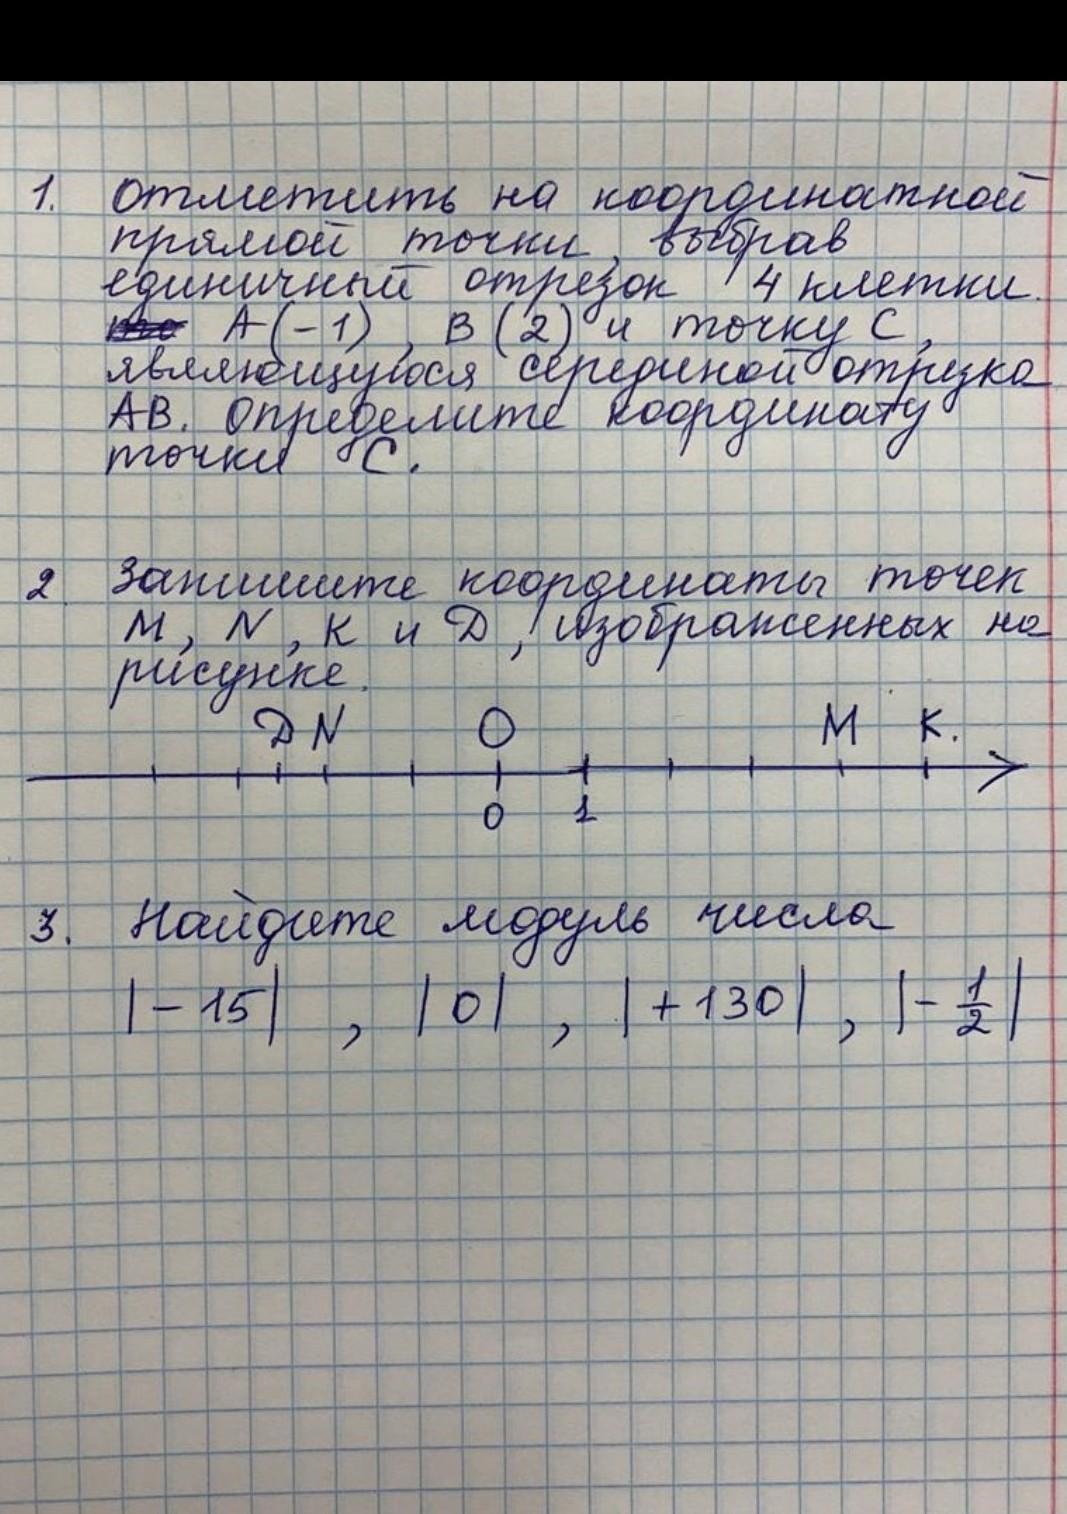 1. Отметить на координатной
прямой точки, выбрав
единичный отрезок 4 клетки.
А(-1), В(2) и точку С,
являющуюся серединой отрезка
АВ. Определите координату
точки С.
2. Запишите координаты точек
М, N, К и D, изображенных на
рисунке.
D N O М К.
0 1
3. Найдите модуль числа
|-15|, |0|, |+130|, |-1/2|